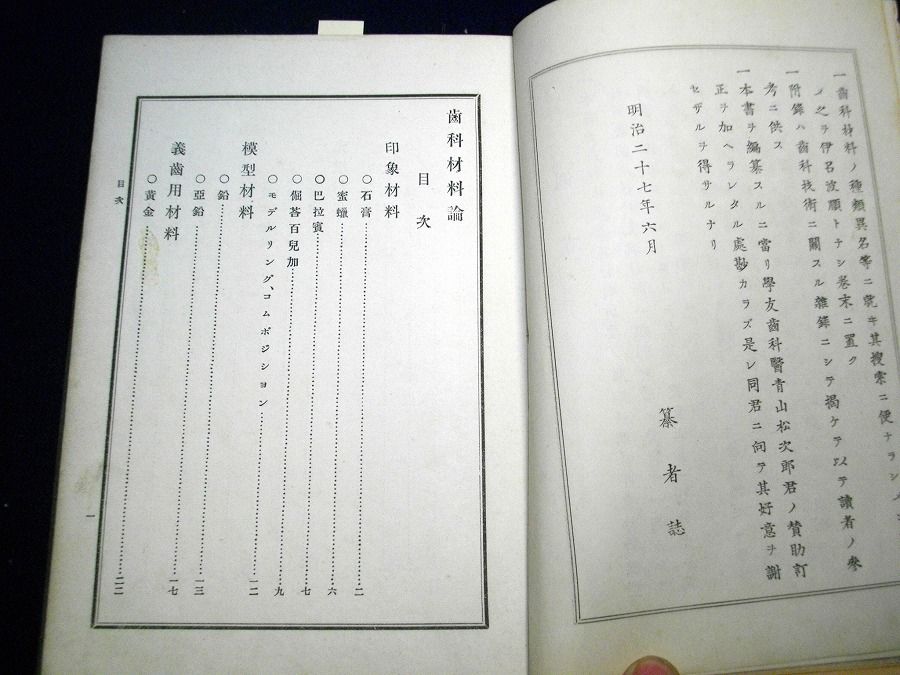 一齒科材料ノ種類異名等ニ就キ其搜索ニ便ナラシ
メ之ヲ伊呂波順トテシ卷末ニ置ク
一附錄ハ齒科技術ニ關スル雜錄ニシテ揭ケテ以テ讀者ノ參
考ニ供ス
一本書ヲ編纂スルニ當リ學友齒科醫青山松次郎君ノ賛助訂
正ヲ加ヘラレタル處尠カラズ是レ同君ニ向テ其好意ヲ謝
セザルヲ得サルナリ
明治二十七年六月
纂者誌
齒科材料論
目次
印象材料
○石膏……二
○蜜蠟……六
○巴拉賓……七
○倔荅百兒加……九
○モデルリング、コムポジション……一二
模型材料
○鉛……一三
○亞鉛……一七
義齒用材料
○黃金……二二
目次
一